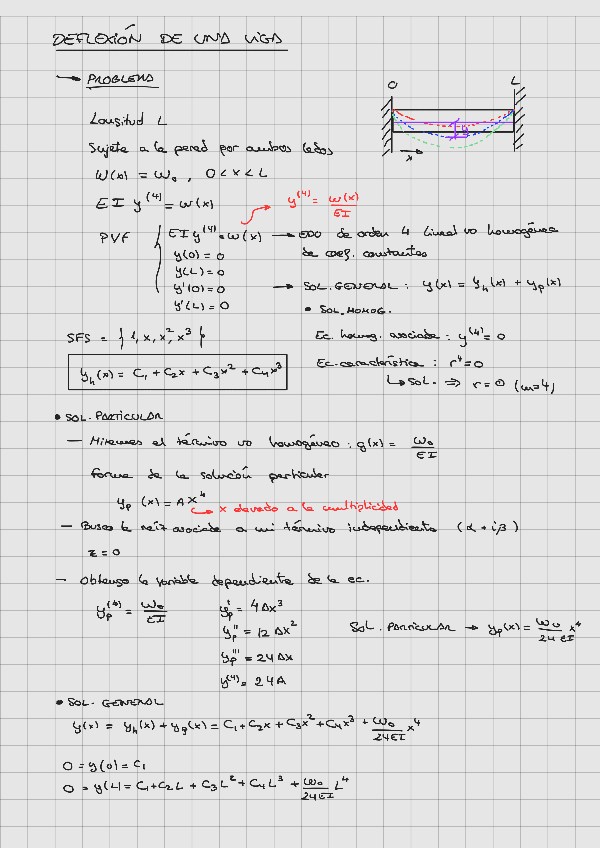 DEFLEXIÓN DE UNA VIGA
→ PROBLEMA
O L
Longitud L
x
Sujeta a la pared por ambos lados
W(x) = W₀ , 0 < x < L
E I y⁽⁴⁾ = w(x)
y⁽⁴⁾ = w(x)/EI
PVF { E I y⁽⁴⁾ = w(x) → EDO de orden 4 lineal no homogénea
y(0) = 0 de coef. constantes
y(L) = 0
y'(0) = 0 → SOL. GENERAL : y(x) = y_h(x) + y_p(x)
y'(L) = 0
• SOL. HOMOG.
SFS = { 1, x, x², x³ }
Ec. homog. asociada : y⁽⁴⁾ = 0
y_h(x) = C₁ + C₂x + C₃x² + C₄x³
Ec. característica : r⁴ = 0
↳ SOL. ⇒ r = 0 (m=4)
• SOL. PARTICULAR
— Miramos el término no homogéneo : g(x) = w₀/EI
forma de la solución particular
y_p (x) = A x⁴
↳ x elevado a la multiplicidad
— Busco la raíz asociada a mi término independiente (α + iβ)
z = 0
— Obtengo la variable dependiente de la ec.
y_p⁽⁴⁾ = w₀/EI y_p' = 4Ax³
y_p'' = 12Ax²
SOL. PARTICULAR → y_p(x) = w₀/24EI x⁴
y_p''' = 24Ax
y⁽⁴⁾ = 24A
• SOL. GENERAL
y(x) = y_h(x) + y_p(x) = C₁ + C₂x + C₃x² + C₄x³ + w₀/24EI x⁴
0 = y(0) = C₁
0 = y(L) = C₁ + C₂L + C₃L² + C₄L³ + w₀/24EI L⁴